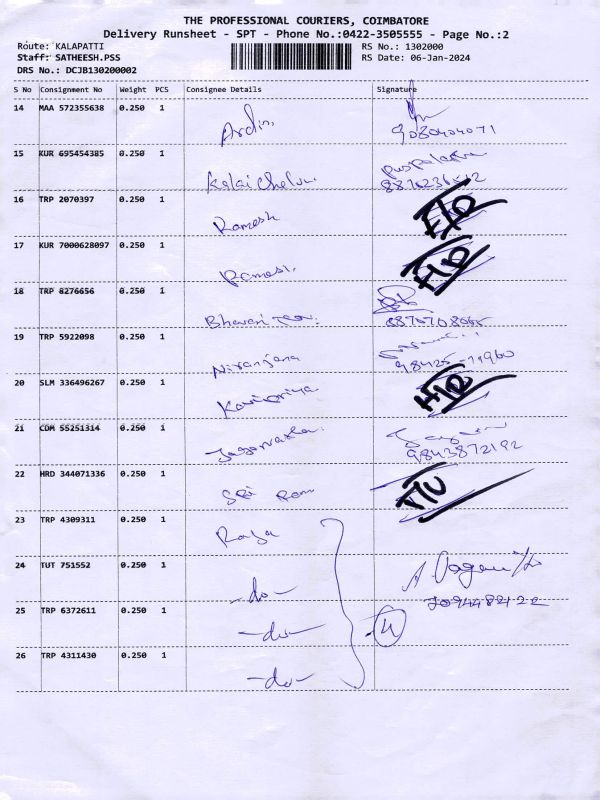 THE PROFESSIONAL COURIERS, COIMBATORE
Delivery Runsheet - SPT - Phone No.:0422-3505555 - Page No.:2
Route: KALAPATTI RS No.: 1302000
Staff: SATHEESH.PSS RS Date: 06-Jan-2024
DRS No.: DCJB130200002
S No Consignment No Weight PCS Consignee Details Signature
14 MAA 572355638 0.250 1
9080404071
15 KUR 695454385 0.250 1
16 TRP 2070397 0.250 1 Ramesh
17 KUR 7000628097 0.250 1 Ramesh
18 TRP 8276656 0.250 1
19 TRP 5922098 0.250 1 Niranjana
20 SLM 336496267 0.250 1
21 CDM 55251314 0.250 1
9843872192
22 HRD 344071336 0.250 1 Sri Ram
23 TRP 4309311 0.250 1 Raja
24 TUT 751552 0.250 1 -do-
25 TRP 6372611 0.250 1 -do- 4
26 TRP 4311430 0.250 1 -do-